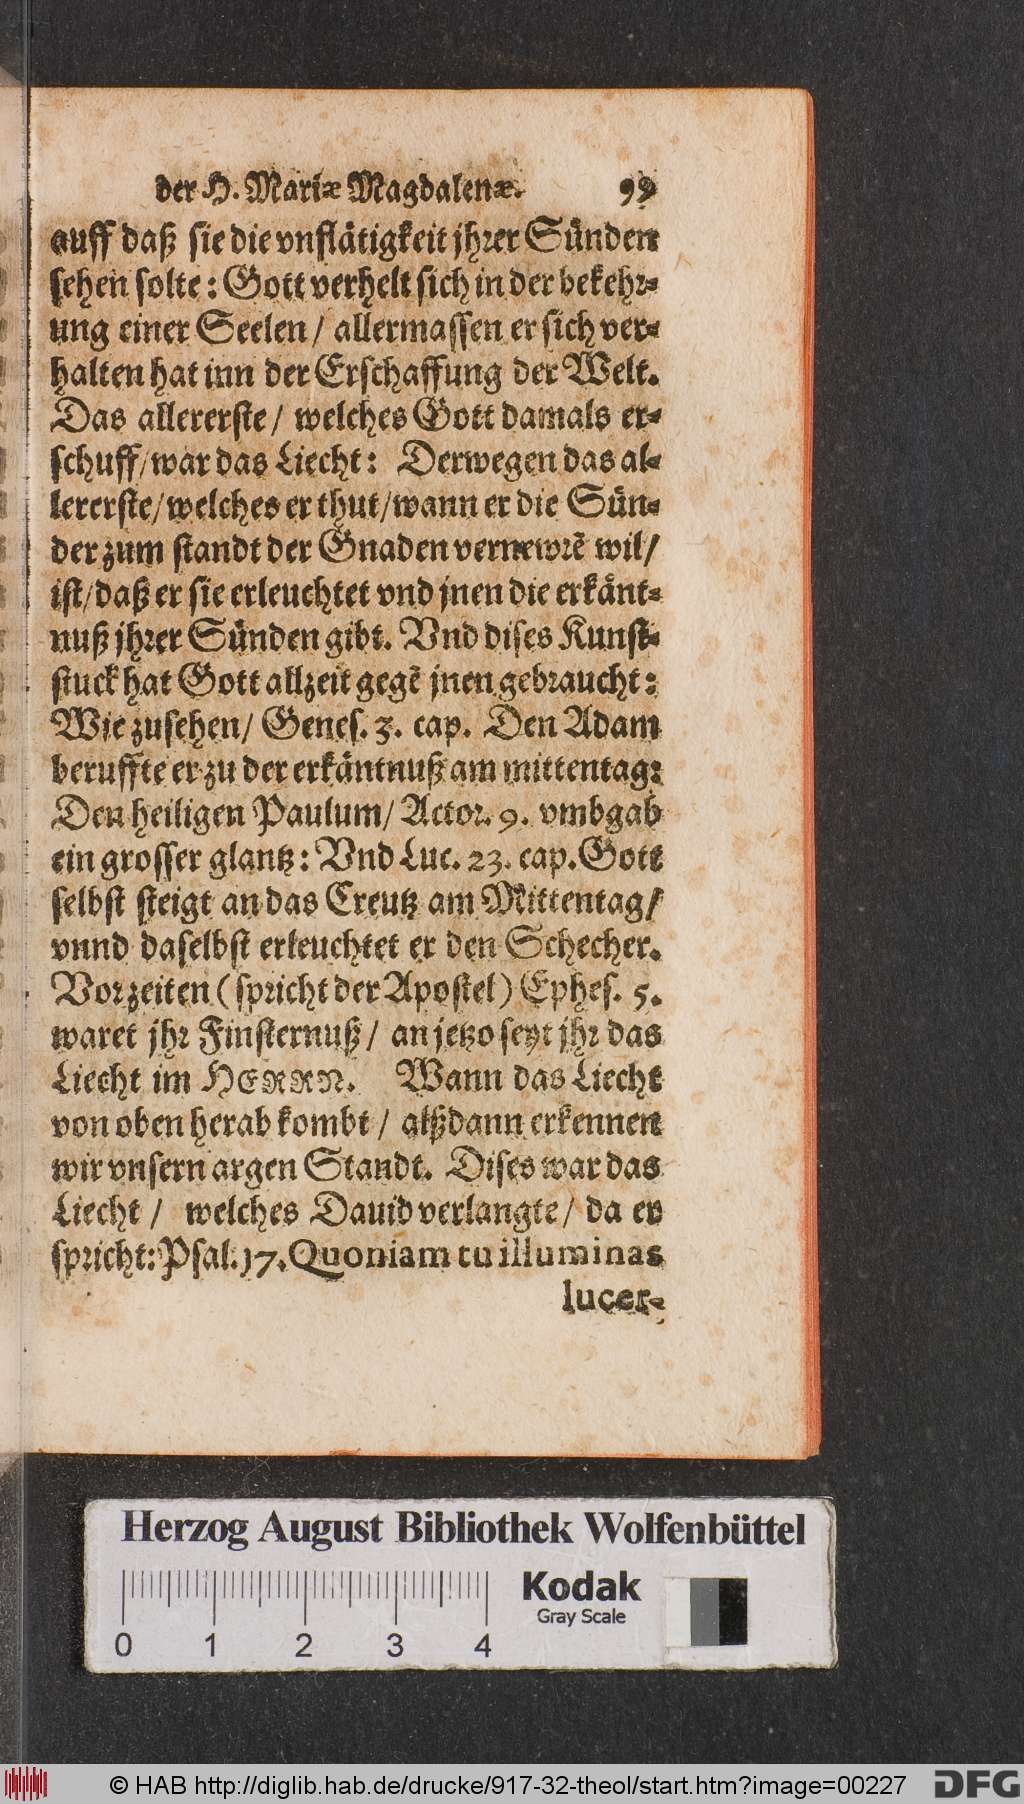 der H. Mariæ Magdalenæ. 99
auff daß sie die vnflätigkeit jhrer Sünden
sehen solte: Gott verhelt sich in der bekehr-
ung einer Seelen / allermassen er sich ver-
halten hat inn der Erschaffung der Welt.
Das allererste / welches Gott damals er-
schuff/war das Liecht: Derwegen das al-
lererste/welches er thut/wann er die Sün-
der zum standt der Gnaden vernewrẽ wil/
ist/daß er sie erleuchtet vnd jnen die erkänt-
nuß jhrer Sünden gibt. Vnd dises Kunst-
stuck hat Gott allzeit gegẽ jnen gebraucht:
Wie zusehen/ Genes. 3. cap. Den Adam
beruffte er zu der erkäntnuß am mittentag:
Den heiligen Paulum/ Actor. 9. vmbgab
ein grosser glantz: Vnd Luc. 23. cap. Gott
selbst steigt an das Creutz am Mittentag/
vnnd daselbst erleuchtet er den Schecher.
Vorzeiten (spricht der Apostel) Ephes. 5.
waret jhr Finsternuß / an jetzo seyt jhr das
Liecht im HERRN. Wann das Liecht
von oben herab kombt / alßdann erkennen
wir vnsern argen Standt. Dises war das
Liecht / welches Dauid verlangte / da er
spricht: Psal. 17. Quoniam tu illuminas
lucer-
Herzog August Bibliothek Wolfenbüttel
Kodak
Gray Scale
0 1 2 3 4
© HAB http://diglib.hab.de/drucke/917-32-theol/start.htm?image=00227
DFG